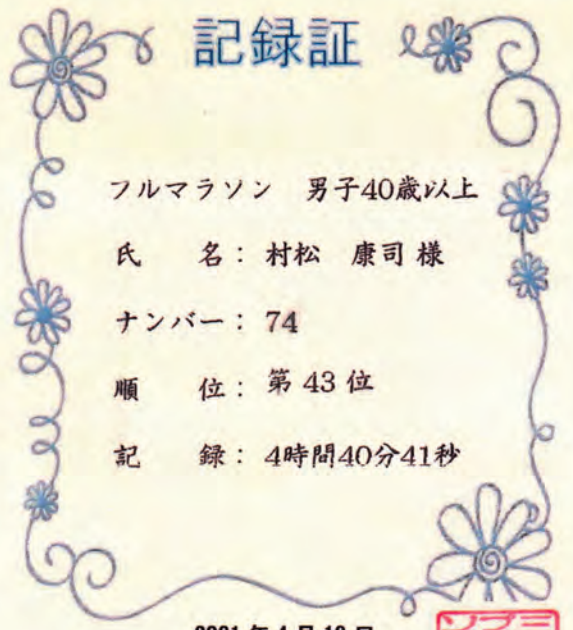 記録証
フルマラソン 男子40歳以上
氏 名：村松 康司 様
ナンバー：74
順 位：第 43 位
記 録：4時間40分41秒